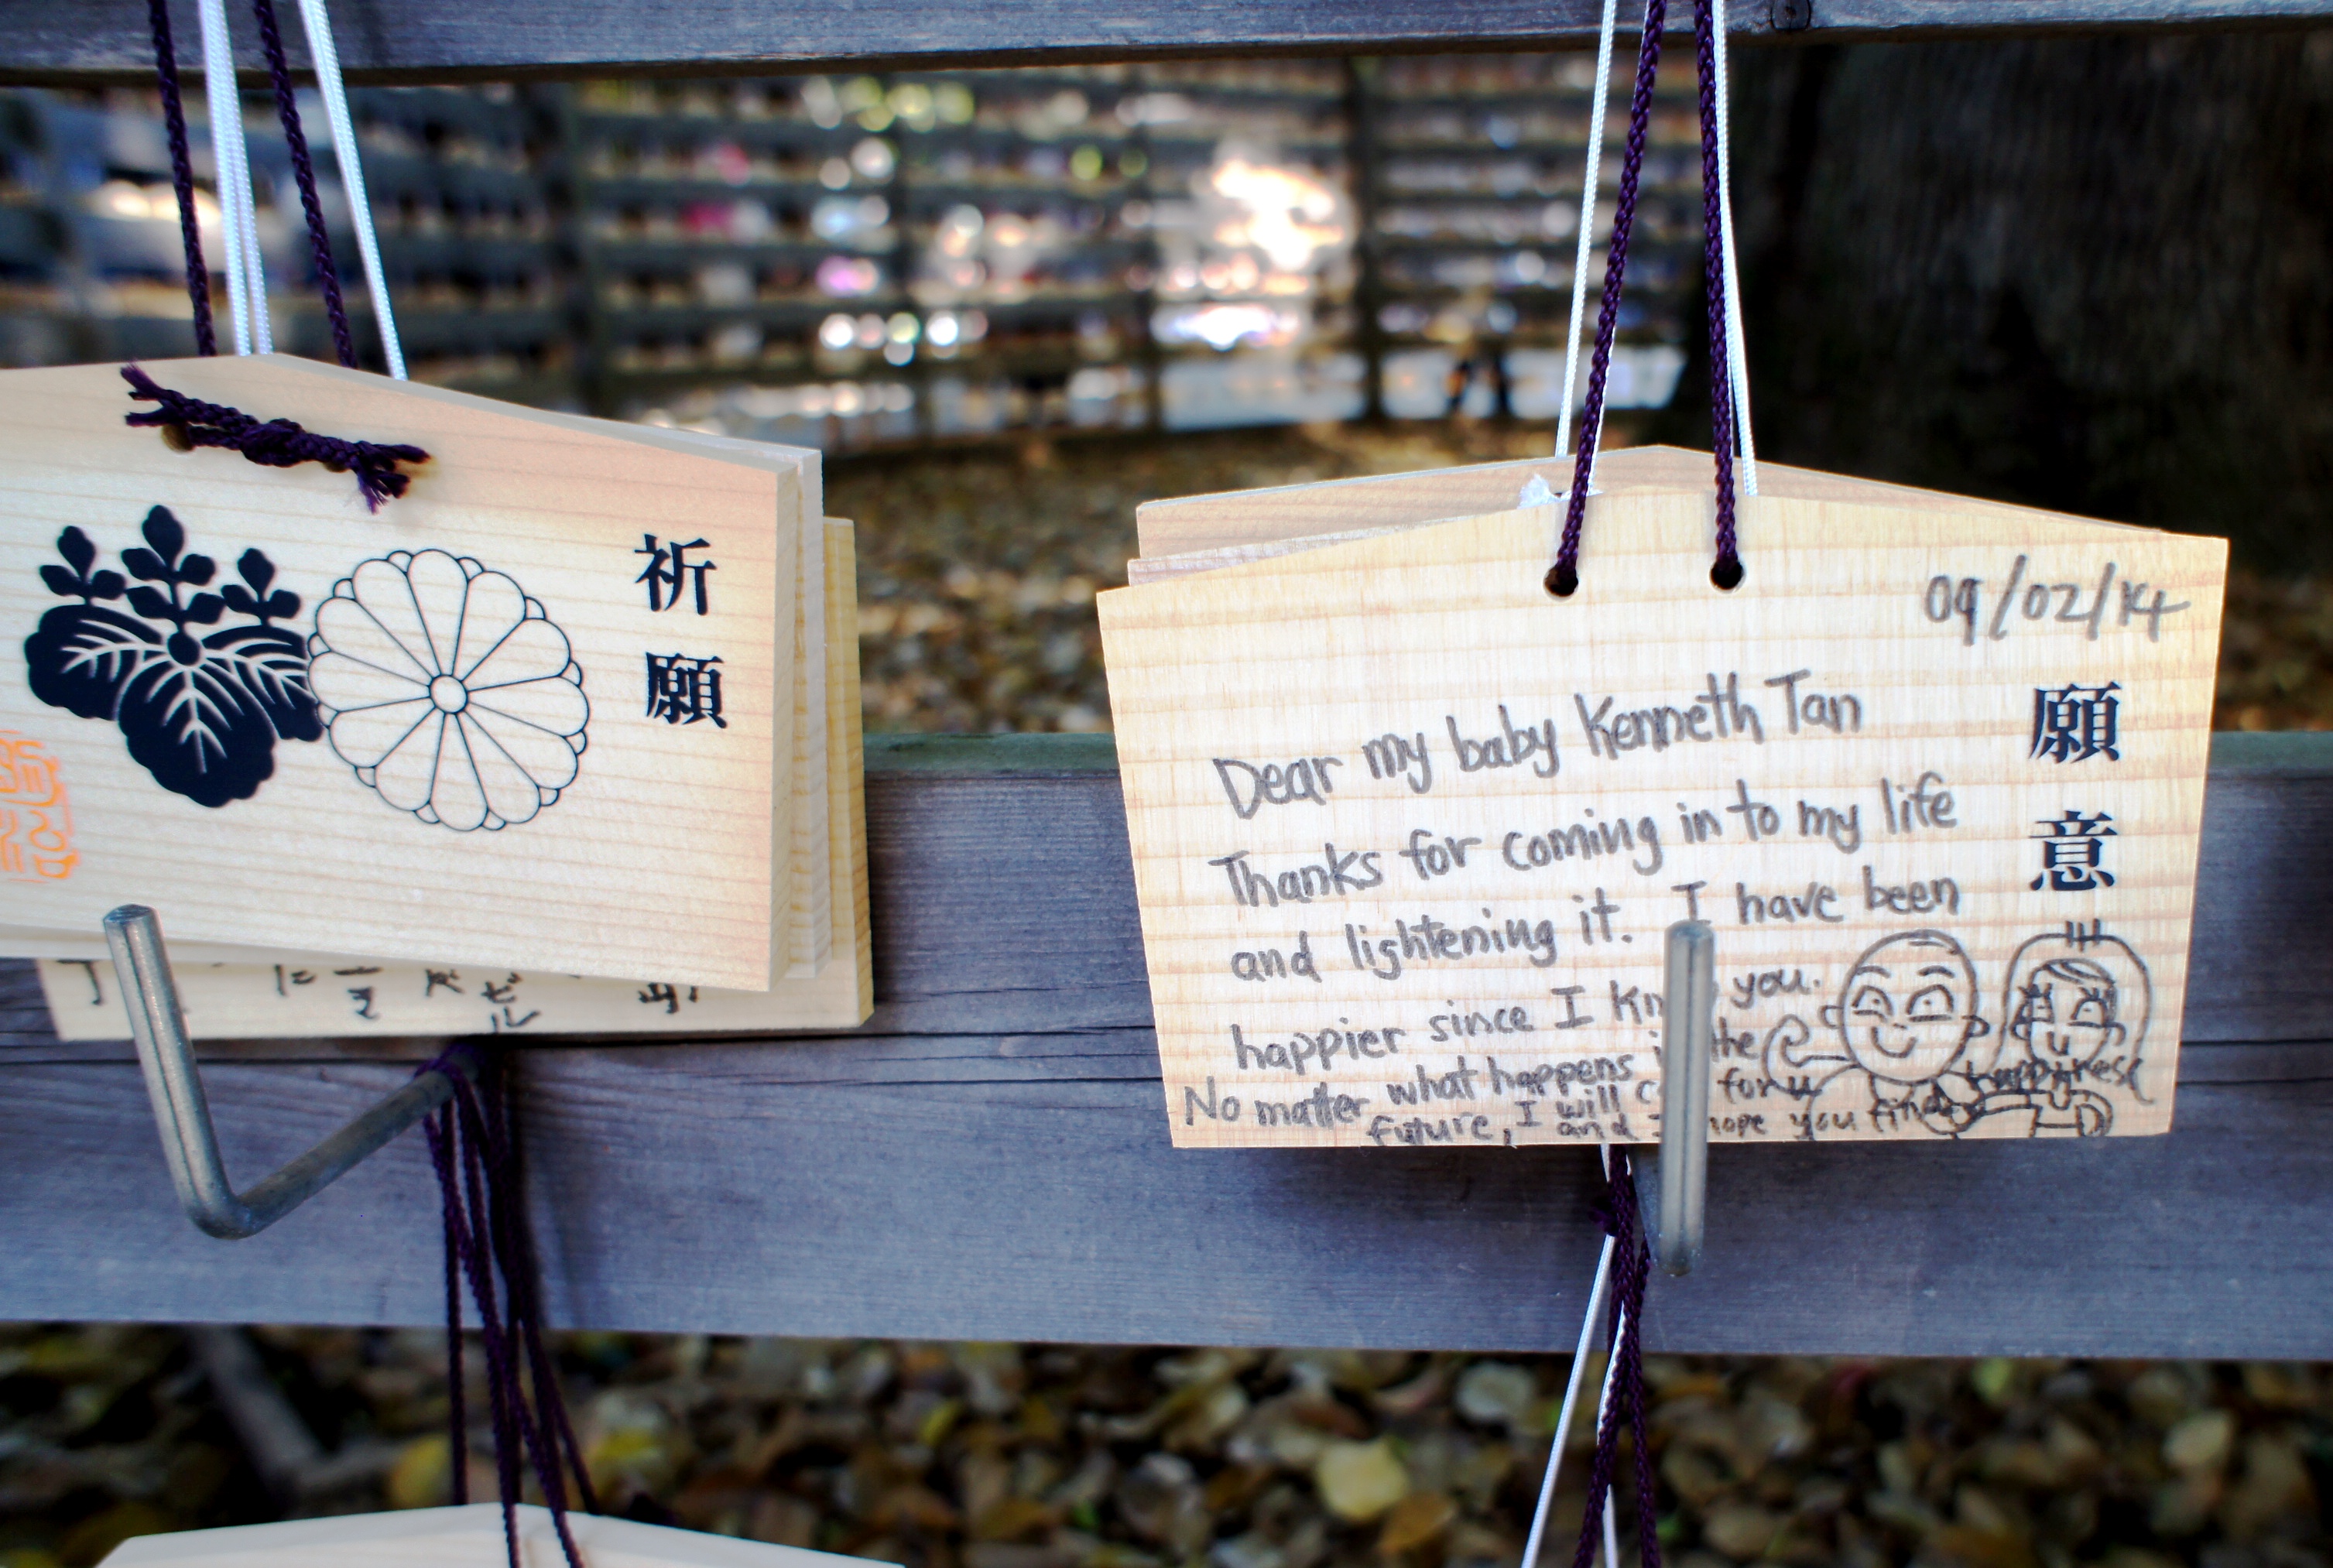 祈願
09/02/14
願意
Dear my baby Kenneth Tan
Thanks for coming in to my life
and lightening it. I have been
happier since I you.
No matter what happens the
future, I will for u
and I hope you find
happiness